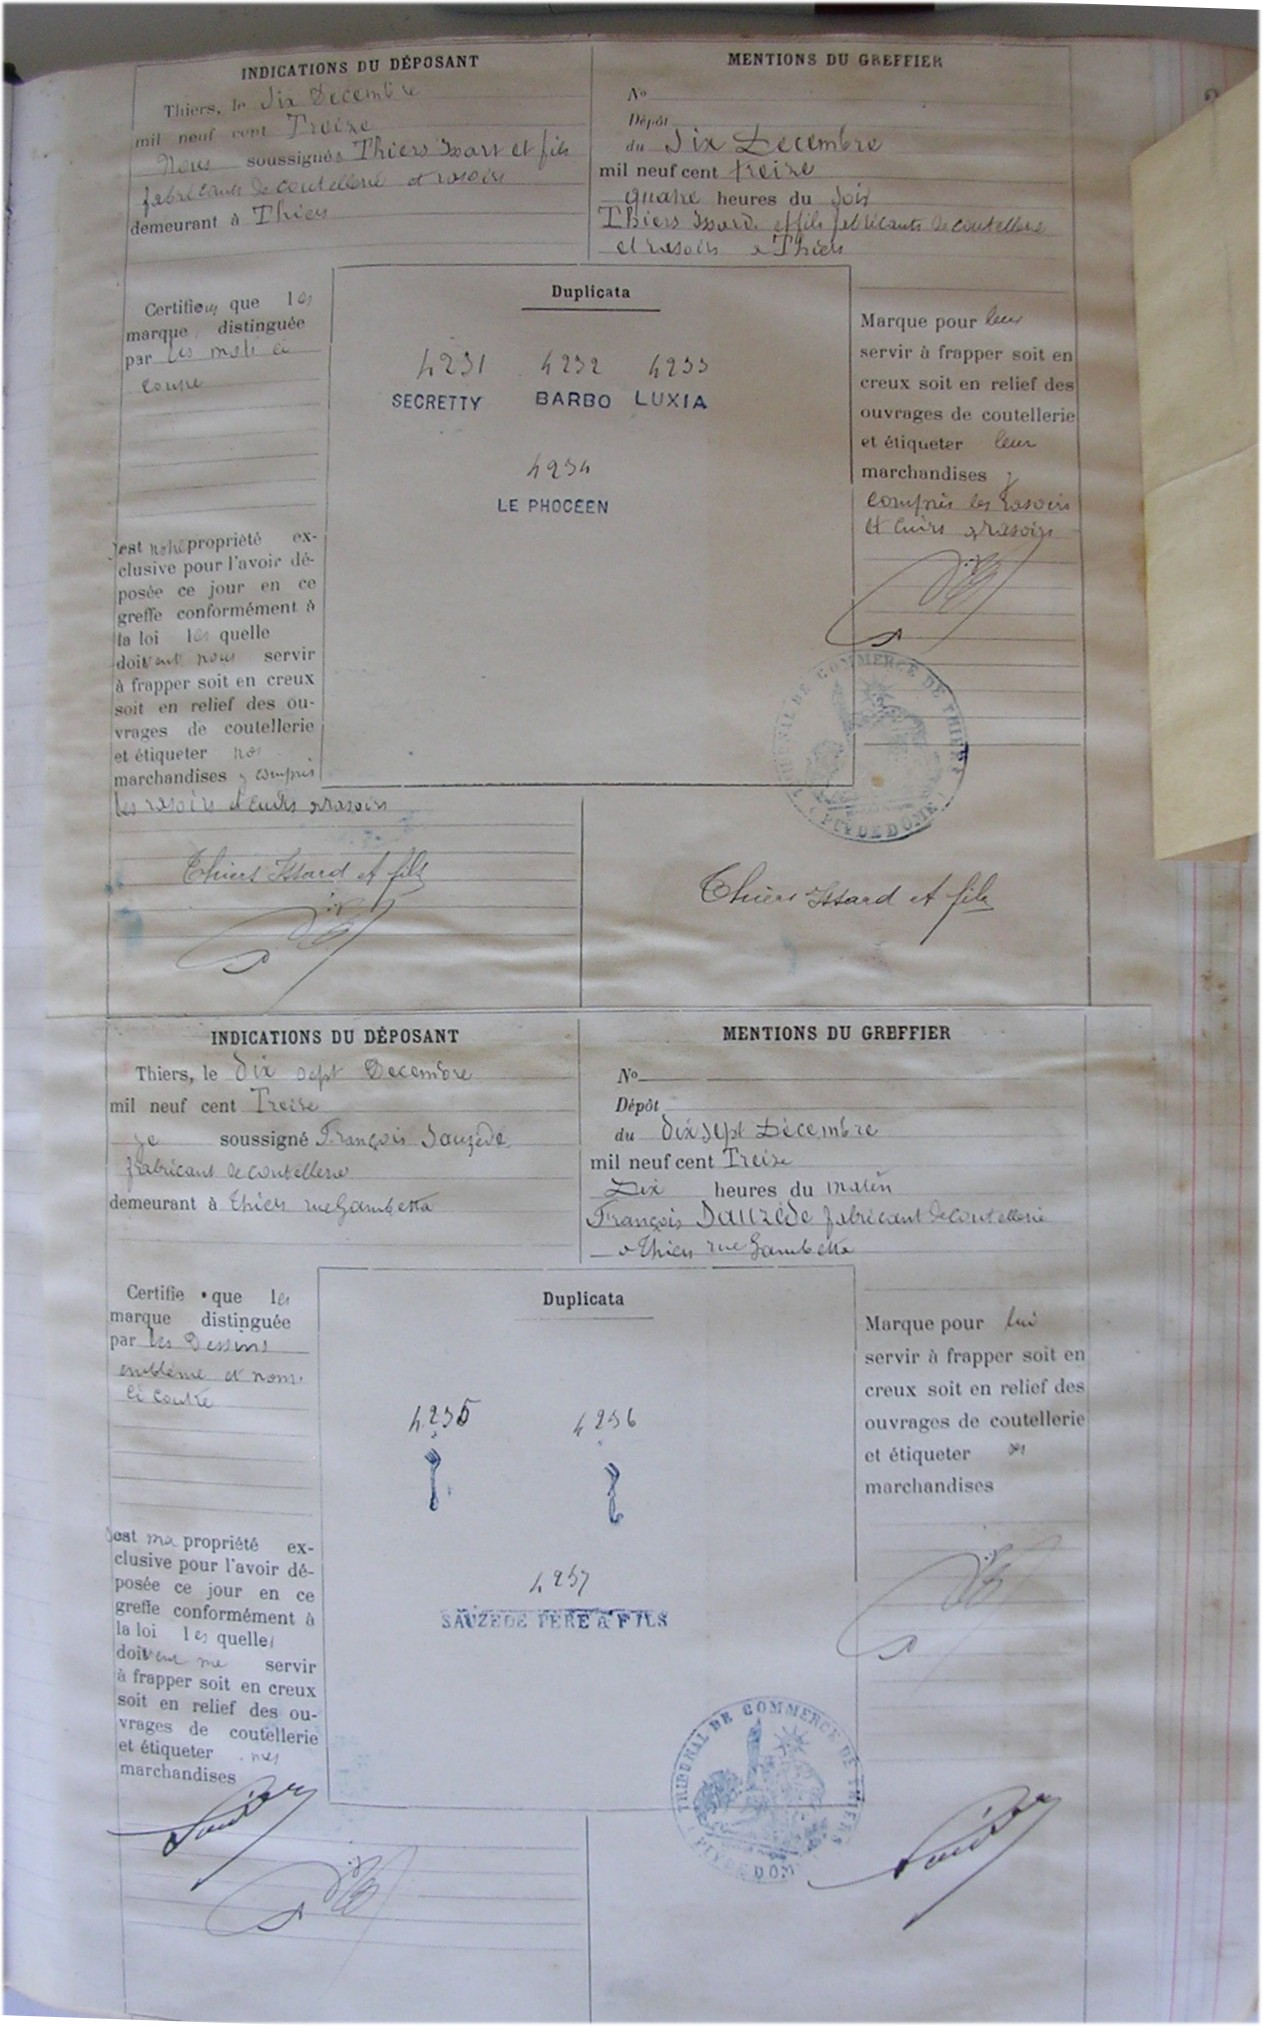 INDICATIONS DU DÉPOSANT
Thiers, le dix Decembre
mil neuf cent Treize
Nous soussignés Thiers Issart et fils
fabricants de coutellerie et rasoirs
demeurant à Thiers
MENTIONS DU GREFFIER
No
Dépôt
du dix Decembre
mil neuf cent treize
quatre heures du soir
Thiers Issard et fils fabricants de coutellerie
et rasoirs a Thiers
Certifions que les
marque distinguée
par les mots ci
contre
Duplicata
4231 4232 4233
SECRETTY BARBO LUXIA
4234
LE PHOCEEN
Marque pour leur
servir à frapper soit en
creux soit en relief des
ouvrages de coutellerie
et étiqueter leur
marchandises y
compris les rasoirs
et cuirs a rasoirs
est notre propriété ex-
clusive pour l'avoir dé-
posée ce jour en ce
greffe conformément à
la loi les quelle
doivent nous servir
à frapper soit en creux
soit en relief des ou-
vrages de coutellerie
et étiqueter nos
marchandises y compris
les rasoirs et cuirs a rasoirs
TRIBUNAL DE COMMERCE DE THIERS
(PUY DE DOME)
Thiers Issard et fils
Thiers Issard et fils
INDICATIONS DU DÉPOSANT
Thiers, le dix sept Decembre
mil neuf cent Treize
Je soussigné François Sauzède
fabricant de coutellerie
demeurant à Thiers rue Gambetta
MENTIONS DU GREFFIER
No
Dépôt
du dix sept Décembre
mil neuf cent Treize
Dix heures du matin
François Sauzède fabricant de coutellerie
a Thiers rue Gambetta
Certifie que les
marque distinguée
par les Dessins
emblème et nom
ci contre
Duplicata
4235 4236
4237
SAUZEDE PERE & FILS
Marque pour lui
servir à frapper soit en
creux soit en relief des
ouvrages de coutellerie
et étiqueter ses
marchandises
est ma propriété ex-
clusive pour l'avoir dé-
posée ce jour en ce
greffe conformément à
la loi les quelles
doivent me servir
à frapper soit en creux
soit en relief des ou-
vrages de coutellerie
et étiqueter mes
marchandises
TRIBUNAL DE COMMERCE DE THIERS
(PUY DE DOME)